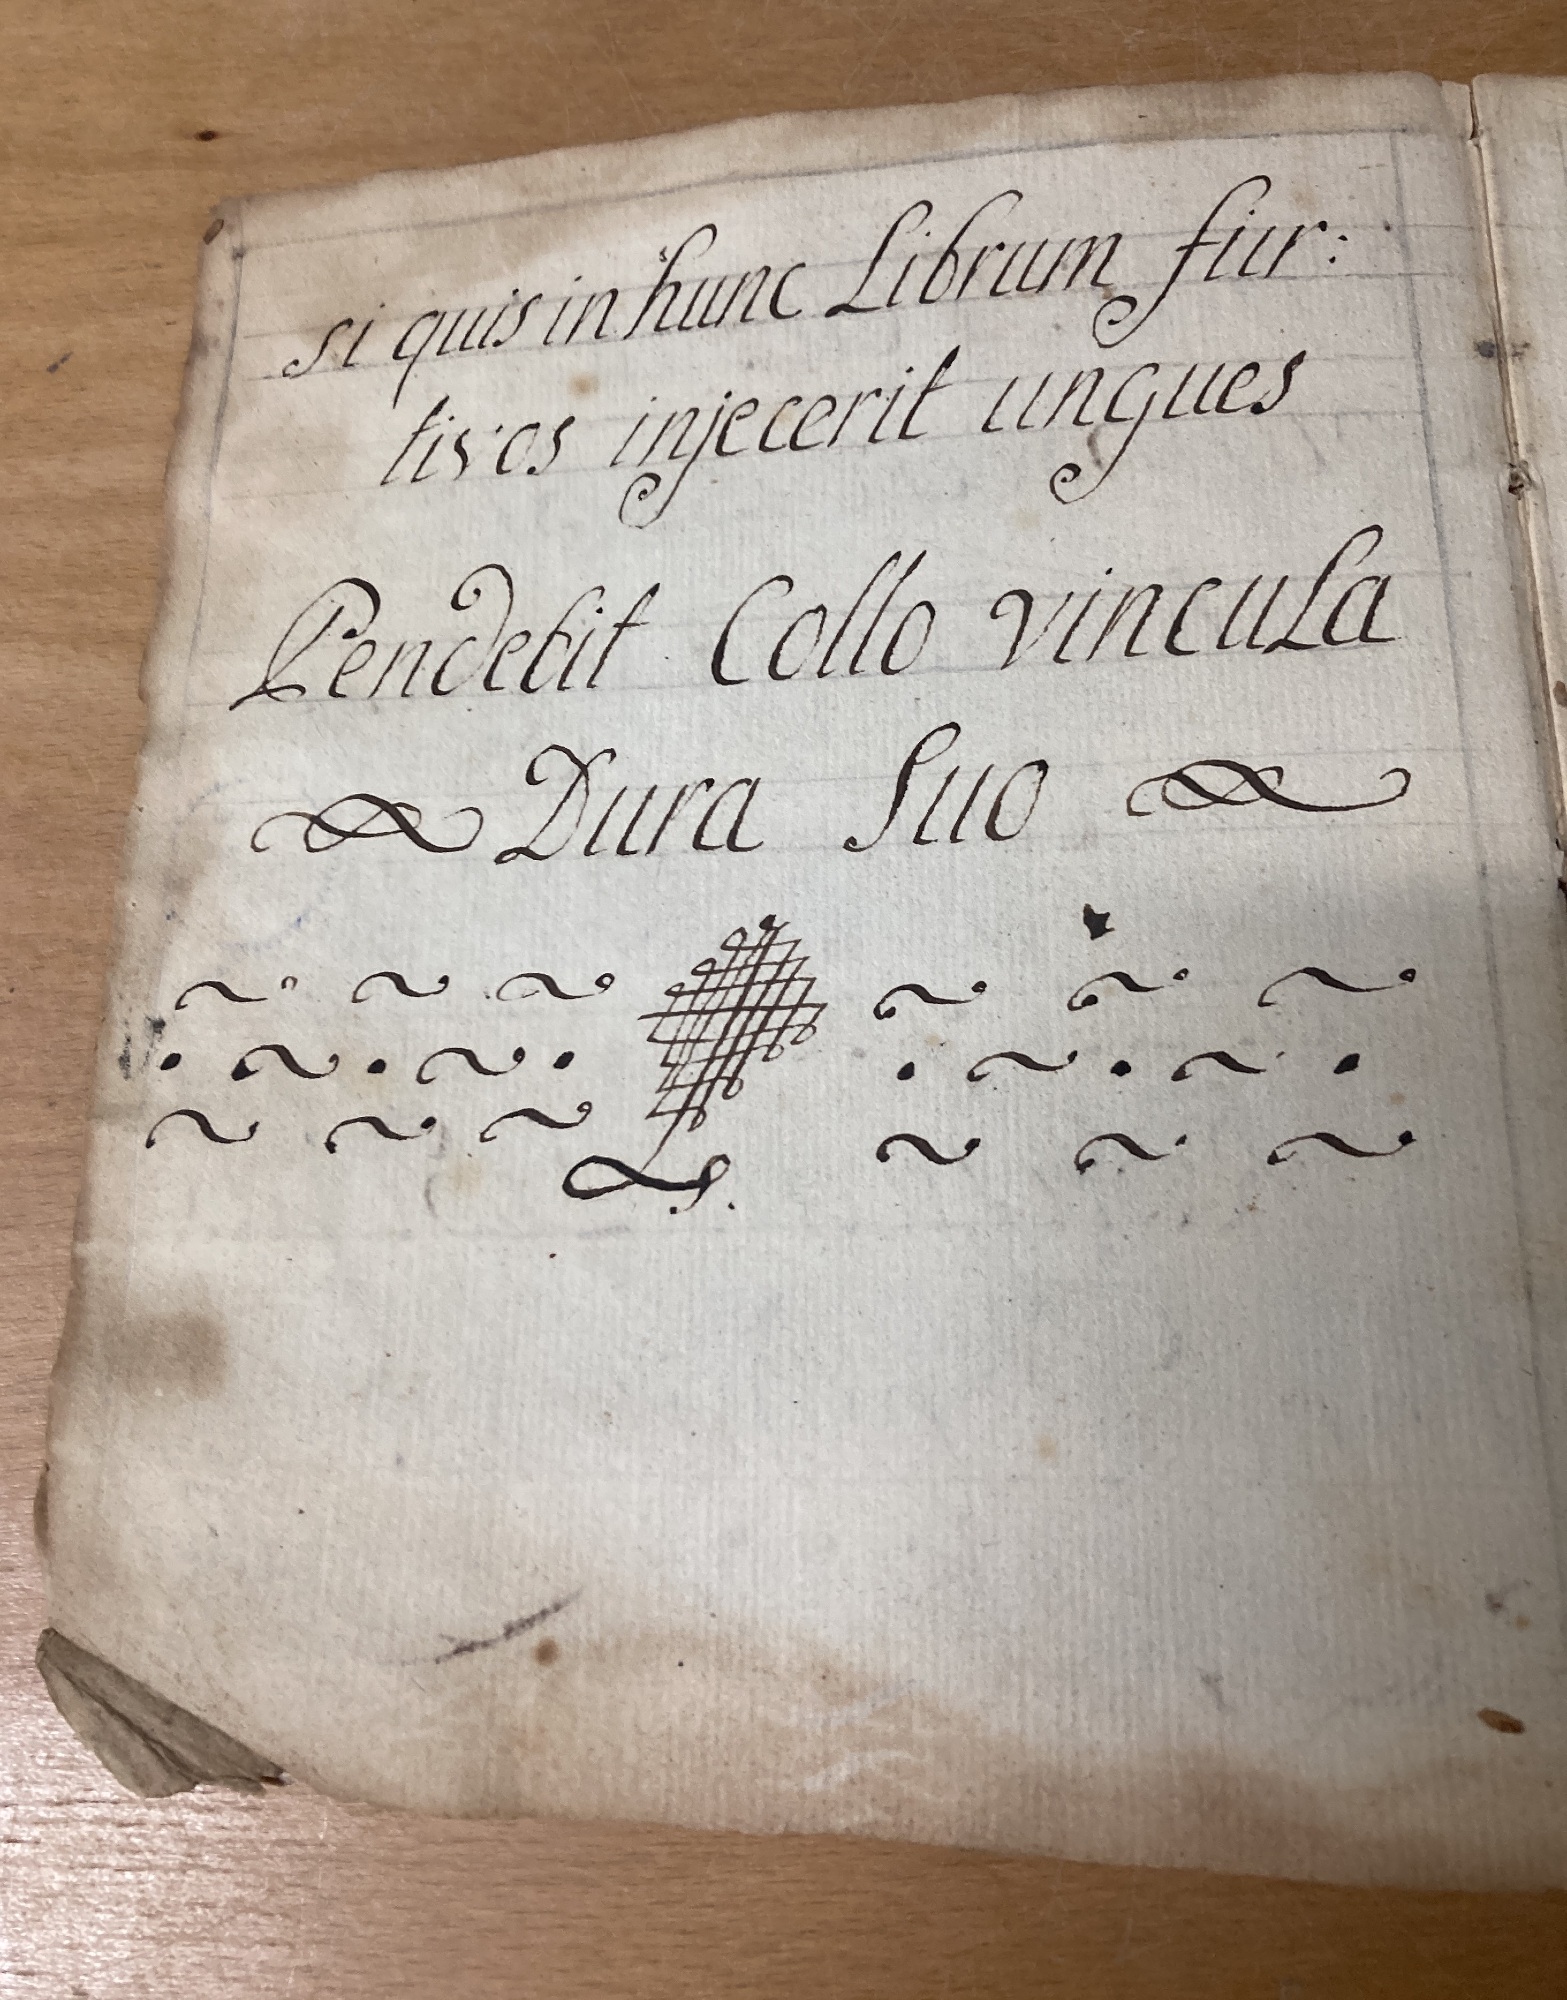 si quis in hunc Librum fur:
tivos injecerit ungues
Pendebit Collo vincula
Dura Suo